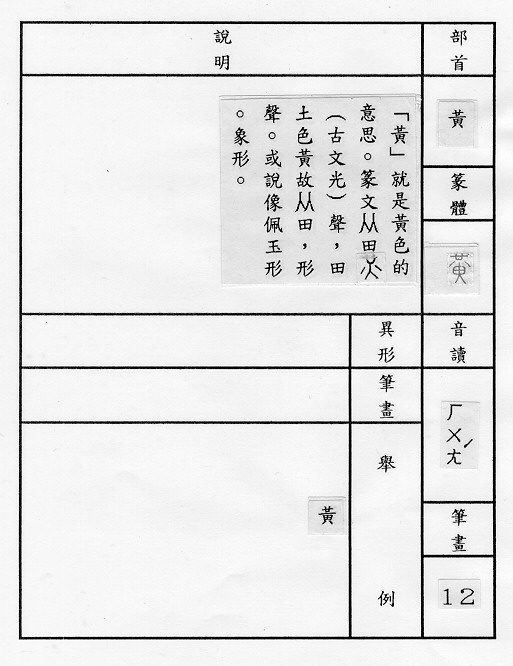 部首
黃
篆體
音讀
ㄏㄨㄤˊ
筆畫
12
說明
「黃」就是黃色的
意思。篆文从田
(古文光)聲,田
土色黃故从田,形
聲。或說像佩玉形
。象形。
異形
筆畫
舉例
黃